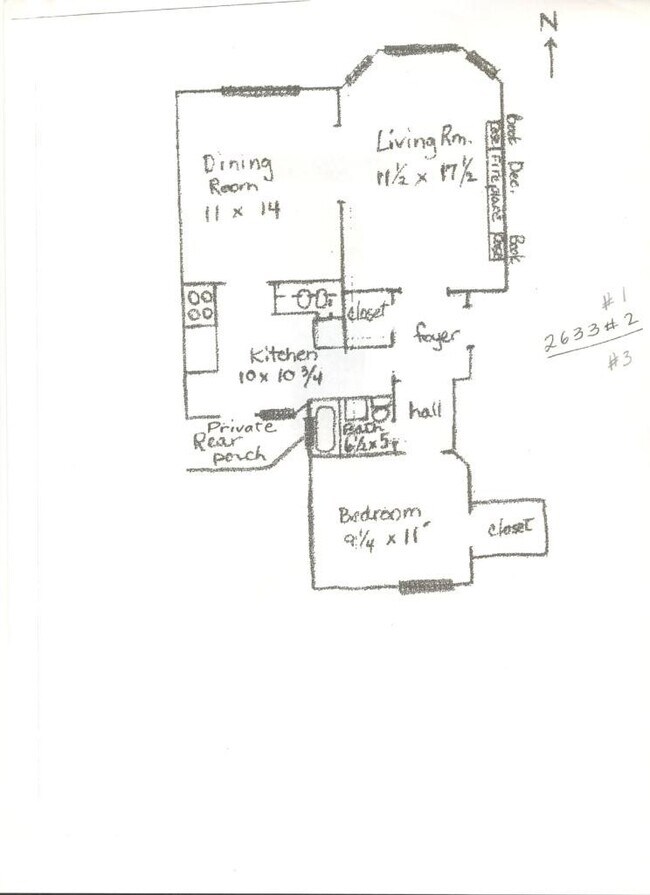 N
Living Rm.
11½ x 17½
Dining
Room
11 x 14
Book
Case
Dec.
Fireplace
Book
Case
closet
foyer
#1
2633#2
#3
Kitchen
10 x 10 ¾
hall
Private
Rear
porch
Bath
6½ x 5
Bedroom
9¼ x 11"
closet